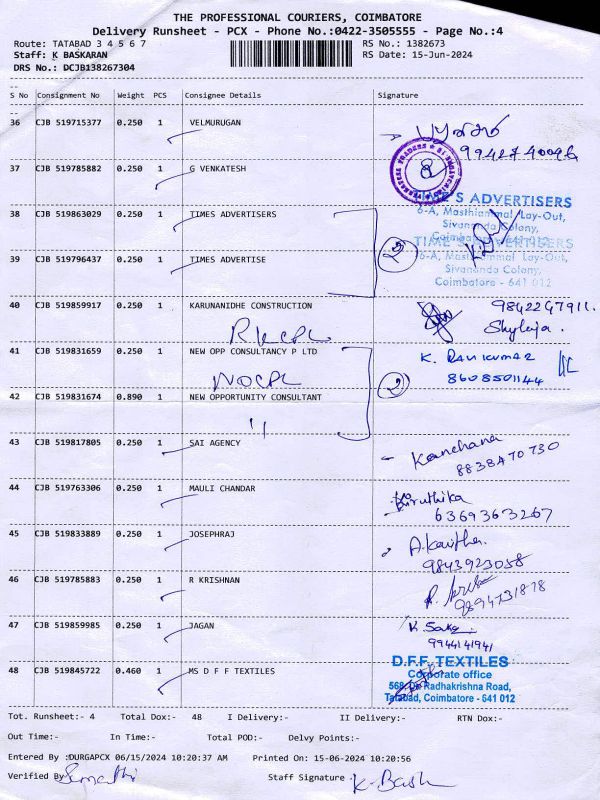 THE PROFESSIONAL COURIERS, COIMBATORE
Delivery Runsheet - PCX - Phone No.:0422-3505555 - Page No.:4
Route: TATABAD 3 4 5 6 7 RS No.: 1382673
Staff: K BASKARAN RS Date: 15-Jun-2024
DRS No.: DCJB138267304
S No Consignment No Weight PCS Consignee Details Signature
36 CJB 519715377 0.250 1 VELMURUGAN
9942740096
37 CJB 519785882 0.250 1 G VENKATESH
38 CJB 519863029 0.250 1 TIMES ADVERTISERS
TIME'S ADVERTISERS
6-A, Masthiammal Lay-Out,
Sivananda Colony,
Coimbatore - 641 012
39 CJB 519796437 0.250 1 TIMES ADVERTISE
2
TIME'S ADVERTISERS
6-A, Masthiammal Lay-Out,
Sivananda Colony,
Coimbatore - 641 012
40 CJB 519859917 0.250 1 KARUNANIDHE CONSTRUCTION
9842247911.
Shyleja.
RKCPL
41 CJB 519831659 0.250 1 NEW OPP CONSULTANCY P LTD
K. RAVIKUMAR
8608501144
NOCPL
2
42 CJB 519831674 0.890 1 NEW OPPORTUNITY CONSULTANT
"
43 CJB 519817805 0.250 1 SAI AGENCY
Kanchana
8838470730
44 CJB 519763306 0.250 1 MAULI CHANDAR
Kiruthika
6369363267
45 CJB 519833889 0.250 1 JOSEPHRAJ
9843923058
46 CJB 519785883 0.250 1 R KRISHNAN
9894731878
47 CJB 519859985 0.250 1 JAGAN
9944141941
48 CJB 519845722 0.460 1 MS D F F TEXTILES
D.F.F. TEXTILES
Corporate office
568, Dr. Radhakrishna Road,
Tatabad, Coimbatore - 641 012
Tot. Runsheet:- 4 Total Dox:- 48 I Delivery:- II Delivery:- RTN Dox:-
Out Time:- In Time:- Total POD:- Delvy Points:-
Entered By :DURGAPCX 06/15/2024 10:20:37 AM Printed On: 15-06-2024 10:20:56
Verified By Staff Signature
K-Bask